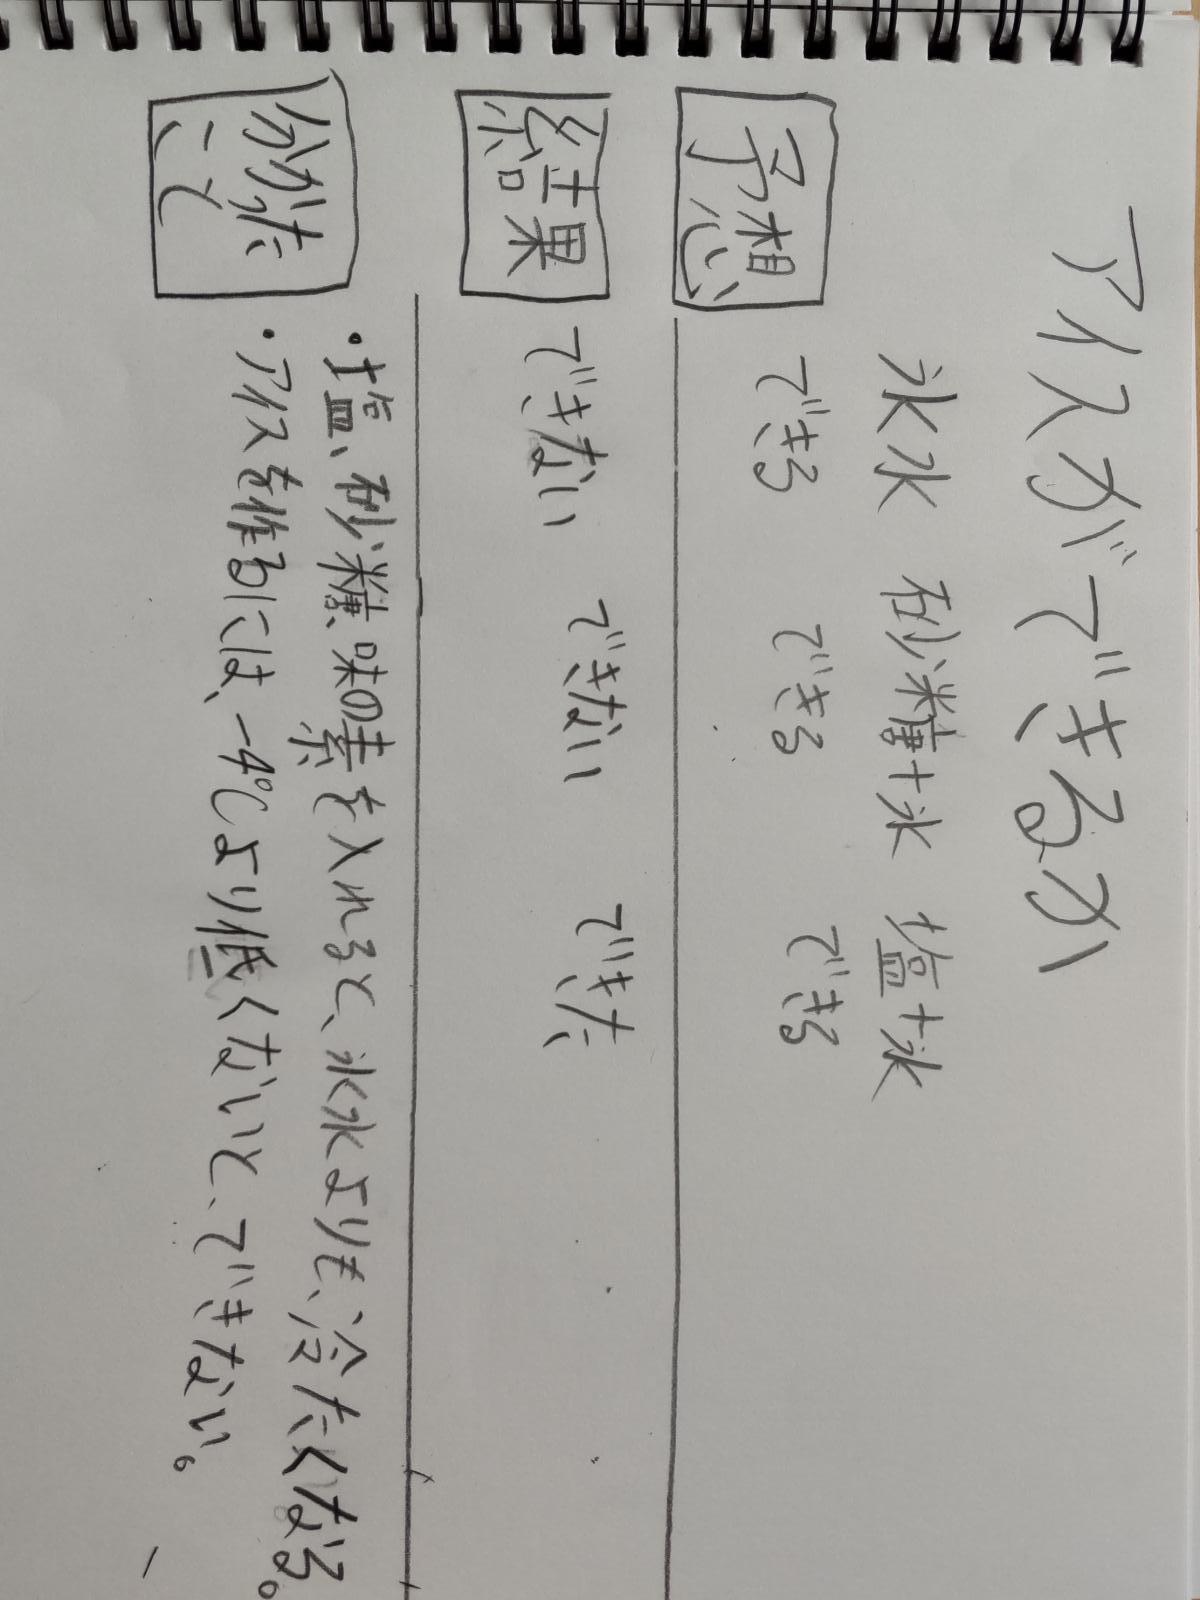 アイスができるか
氷水 砂糖+氷 塩+氷
予想 できる できる できる
結果 できない できない できた
分かったこと
・塩、砂糖、味の素を入れると、氷水よりも、冷たくなる。
・アイスを作るには、-4℃より低くないと、できない。